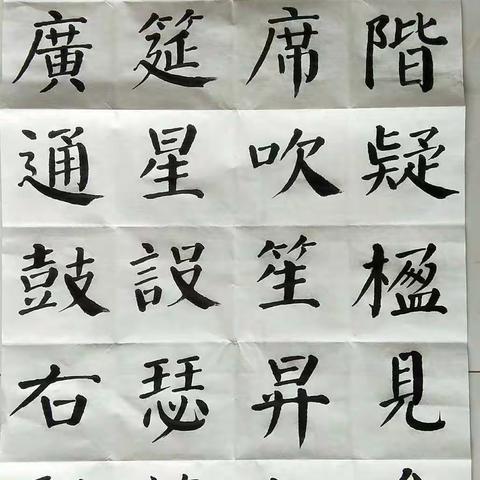 階疑楹見
席吹笙昇
筵星設瑟
廣通鼓右